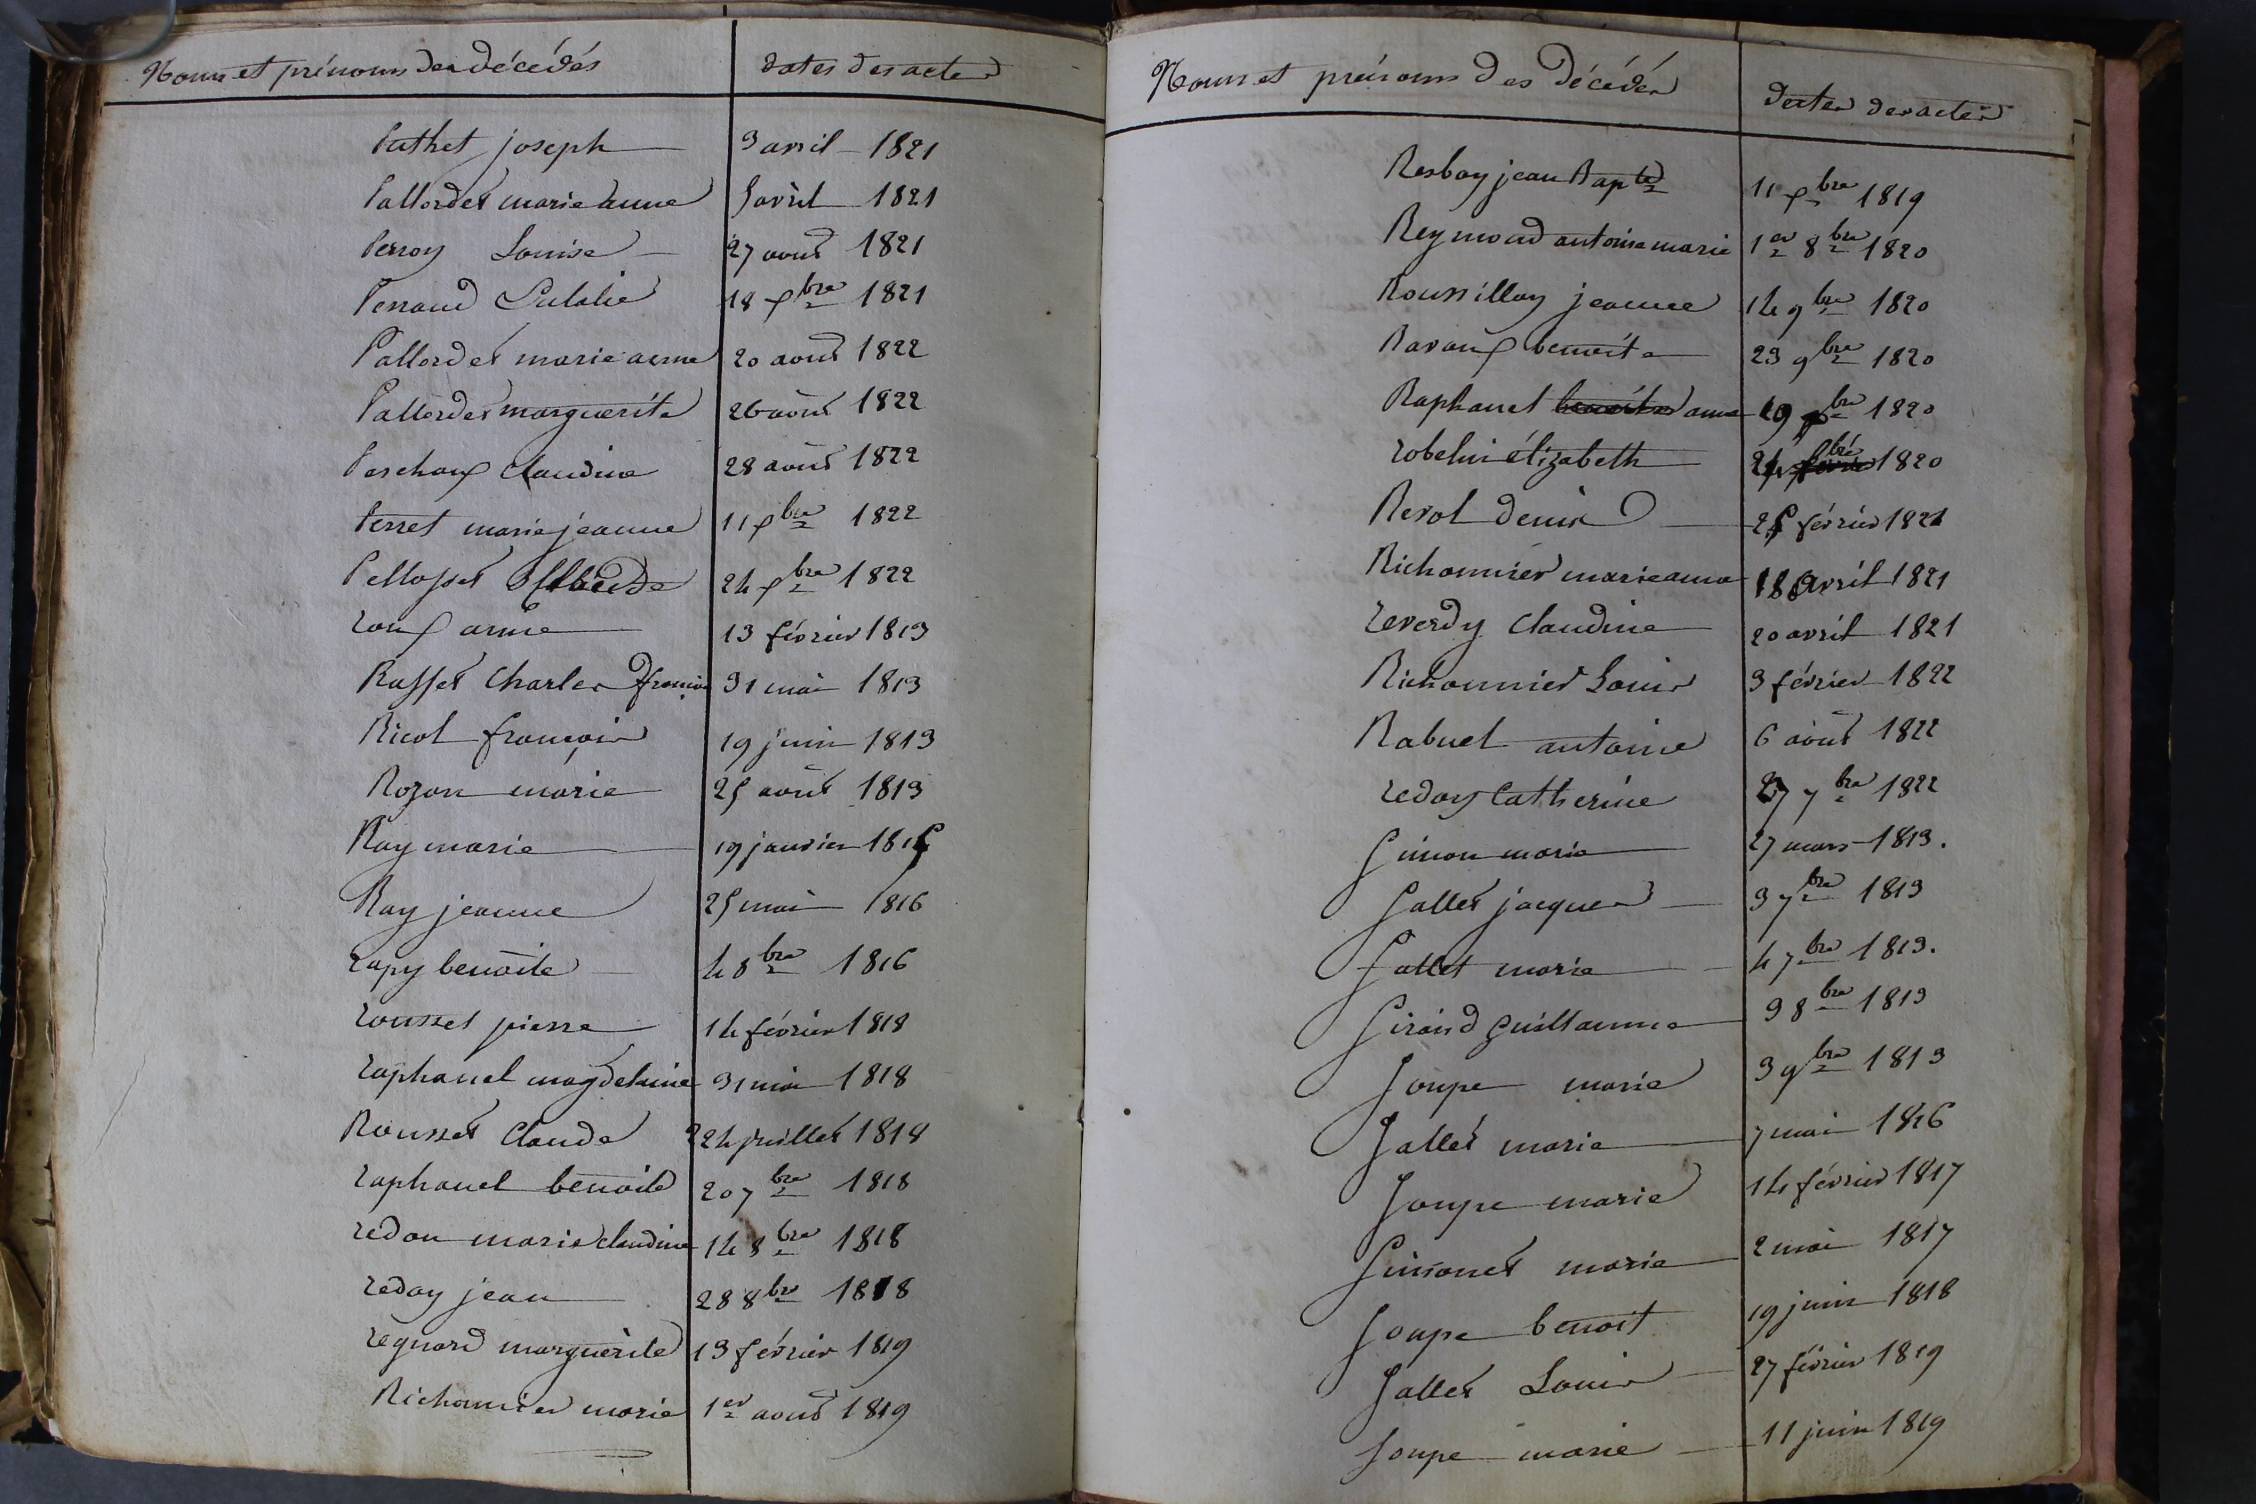 Noms et prénoms des décédés dates des actes
Puthet joseph 3 avril 1821
Pallordet marie anne 5 avril 1821
Perroy Louise 27 aout 1821
Perraud Eulalie 18 xbre 1821
Pallordet marie anne 20 aout 1822
Pallordet marguerite 26 aout 1822
Perchoux Claudine 28 août 1822
Perret marie jeanne 11 xbre 1822
Pellosset 24 xbre 1822
roux anne 13 février 1813
Rasset Charles françois 31 mai 1813
Ricol françois 19 juin 1813
Rozan marie 25 août 1813
Ray marie 19 janvier 1815
Ray jeanne 25 mai 1816
rapy benoite 4 8bre 1816
rousset pierre 14 février 1818
raphanel magdelaine 31 mai 1818
Rousset Claude 24 juillet 1818
raphanel benoite 20 7bre 1818
redon marie claudine 14 8bre 1818
reday jean 28 8bre 1818
regnard marguerite 13 février 1819
Richonnier marie 1er aout 1819
Noms et prénoms des décédés dates des actes
Resboy jean Bapte 11 xbre 1819
Reymond antoine marie 1er 8bre 1820
Roussillay jeanne 14 9bre 1820
Ravoux benoite 23 9bre 1820
Raphanel benoite anne 19 xbre 1820
robelin élizabeth 24 xbre 1820
Revol denis 25 février 1821
Richonnier marie anne 18 avril 1821
reverdy Claudine 20 avril 1821
Richonnier Louis 3 février 1822
Rabuel antoine 6 août 1822
reday Catherine 27 7bre 1822
Simon marie 27 mars 1813.
Sallet jacques 3 7bre 1813
Sallet marie 4 7bre 1813.
Siraud guillaume 9 8bre 1813
Soupe marie 3 9bre 1813
Sallet marie 7 mai 1816
Soupe marie 14 février 1817
Simonet marie 2 mai 1817
Soupe benoit 19 juin 1818
Sallet Louis 27 février 1819
Soupe marie 11 juin 1819